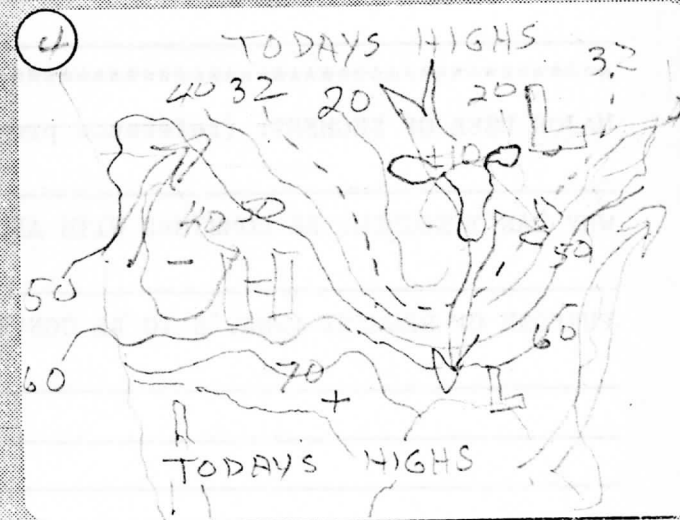 4
TODAYS HIGHS
40 32 20 20 L 32
10
40 50
H
50
50
60
60
70
L
TODAYS HIGHS